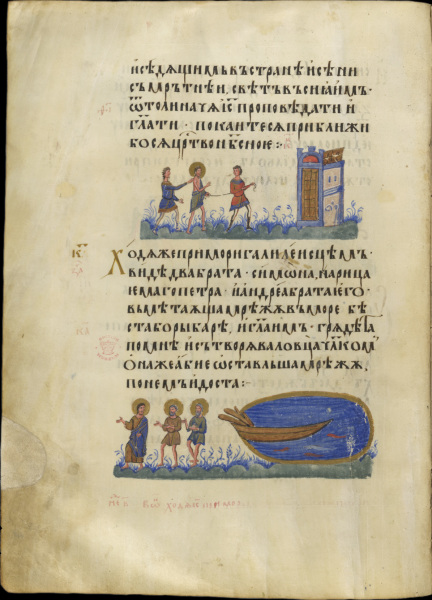 и сѣдѧщиимь въ странѣ и сѣни
съмрътнѣи, свѣтъ въсиꙗ имъ·
ѿтоли начѧ і҃с проповѣдати и
гл҃ати· покаите сѧ приближи
бо сѧ цр҃тво нб҃сное :·
Ходѧ же при мори галилеисцѣмъ·
видѣ два брата· симѡна, нарица
емаго петра· и андреа брата его·
въметаѧща мрѣжѫ въ море· бѣ
ста бо рыбарѣ, и гл҃а имъ· грѧдѣта
по мнѣ и сътворѧ ва ловца чл҃кѡм·
она же абие ѡставльша мрѣжѫ,
по немъ идоста :·